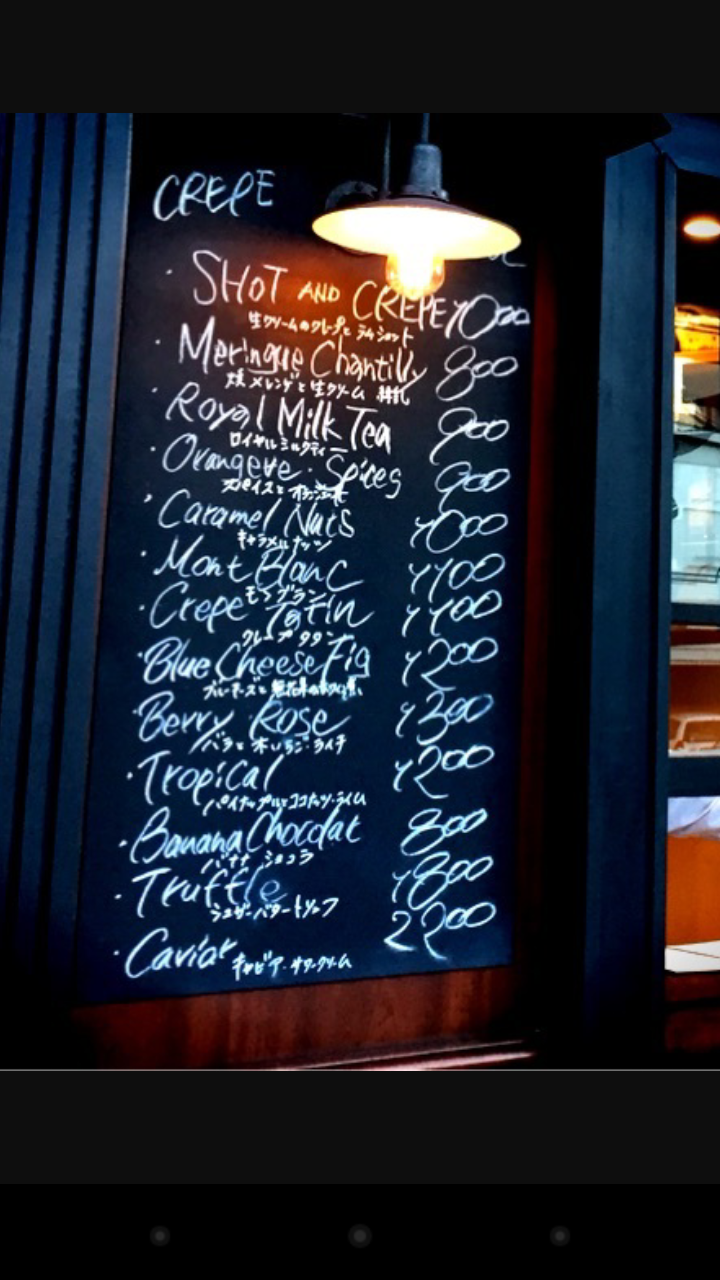 CREPE
· SHOT AND CREPE 1000
生クリームのクレープと ラムショット
· Meringue Chantilly 800
焼メレンゲと生クリーム
· Royal Milk Tea 900
ロイヤルミルクティー
· Orangette · Spices 900
スパイスと
· Caramel Nuts 1000
キャラメルナッツ
· Mont Blanc 1100
モンブラン
· Crepe Tatin 1100
クレープタタン
· Blue Cheese Fig 1200
ブルーチーズと
· Berry Rose 1300
バラと木いちご·ライチ
· Tropical 1200
パイナップルとココナッツ·ライム
· Banana Chocolat 800
バナナ ショコラ
· Truffle 1800
シュガーバタートリュフ
· Caviar 2200
キャビア·サワークリーム